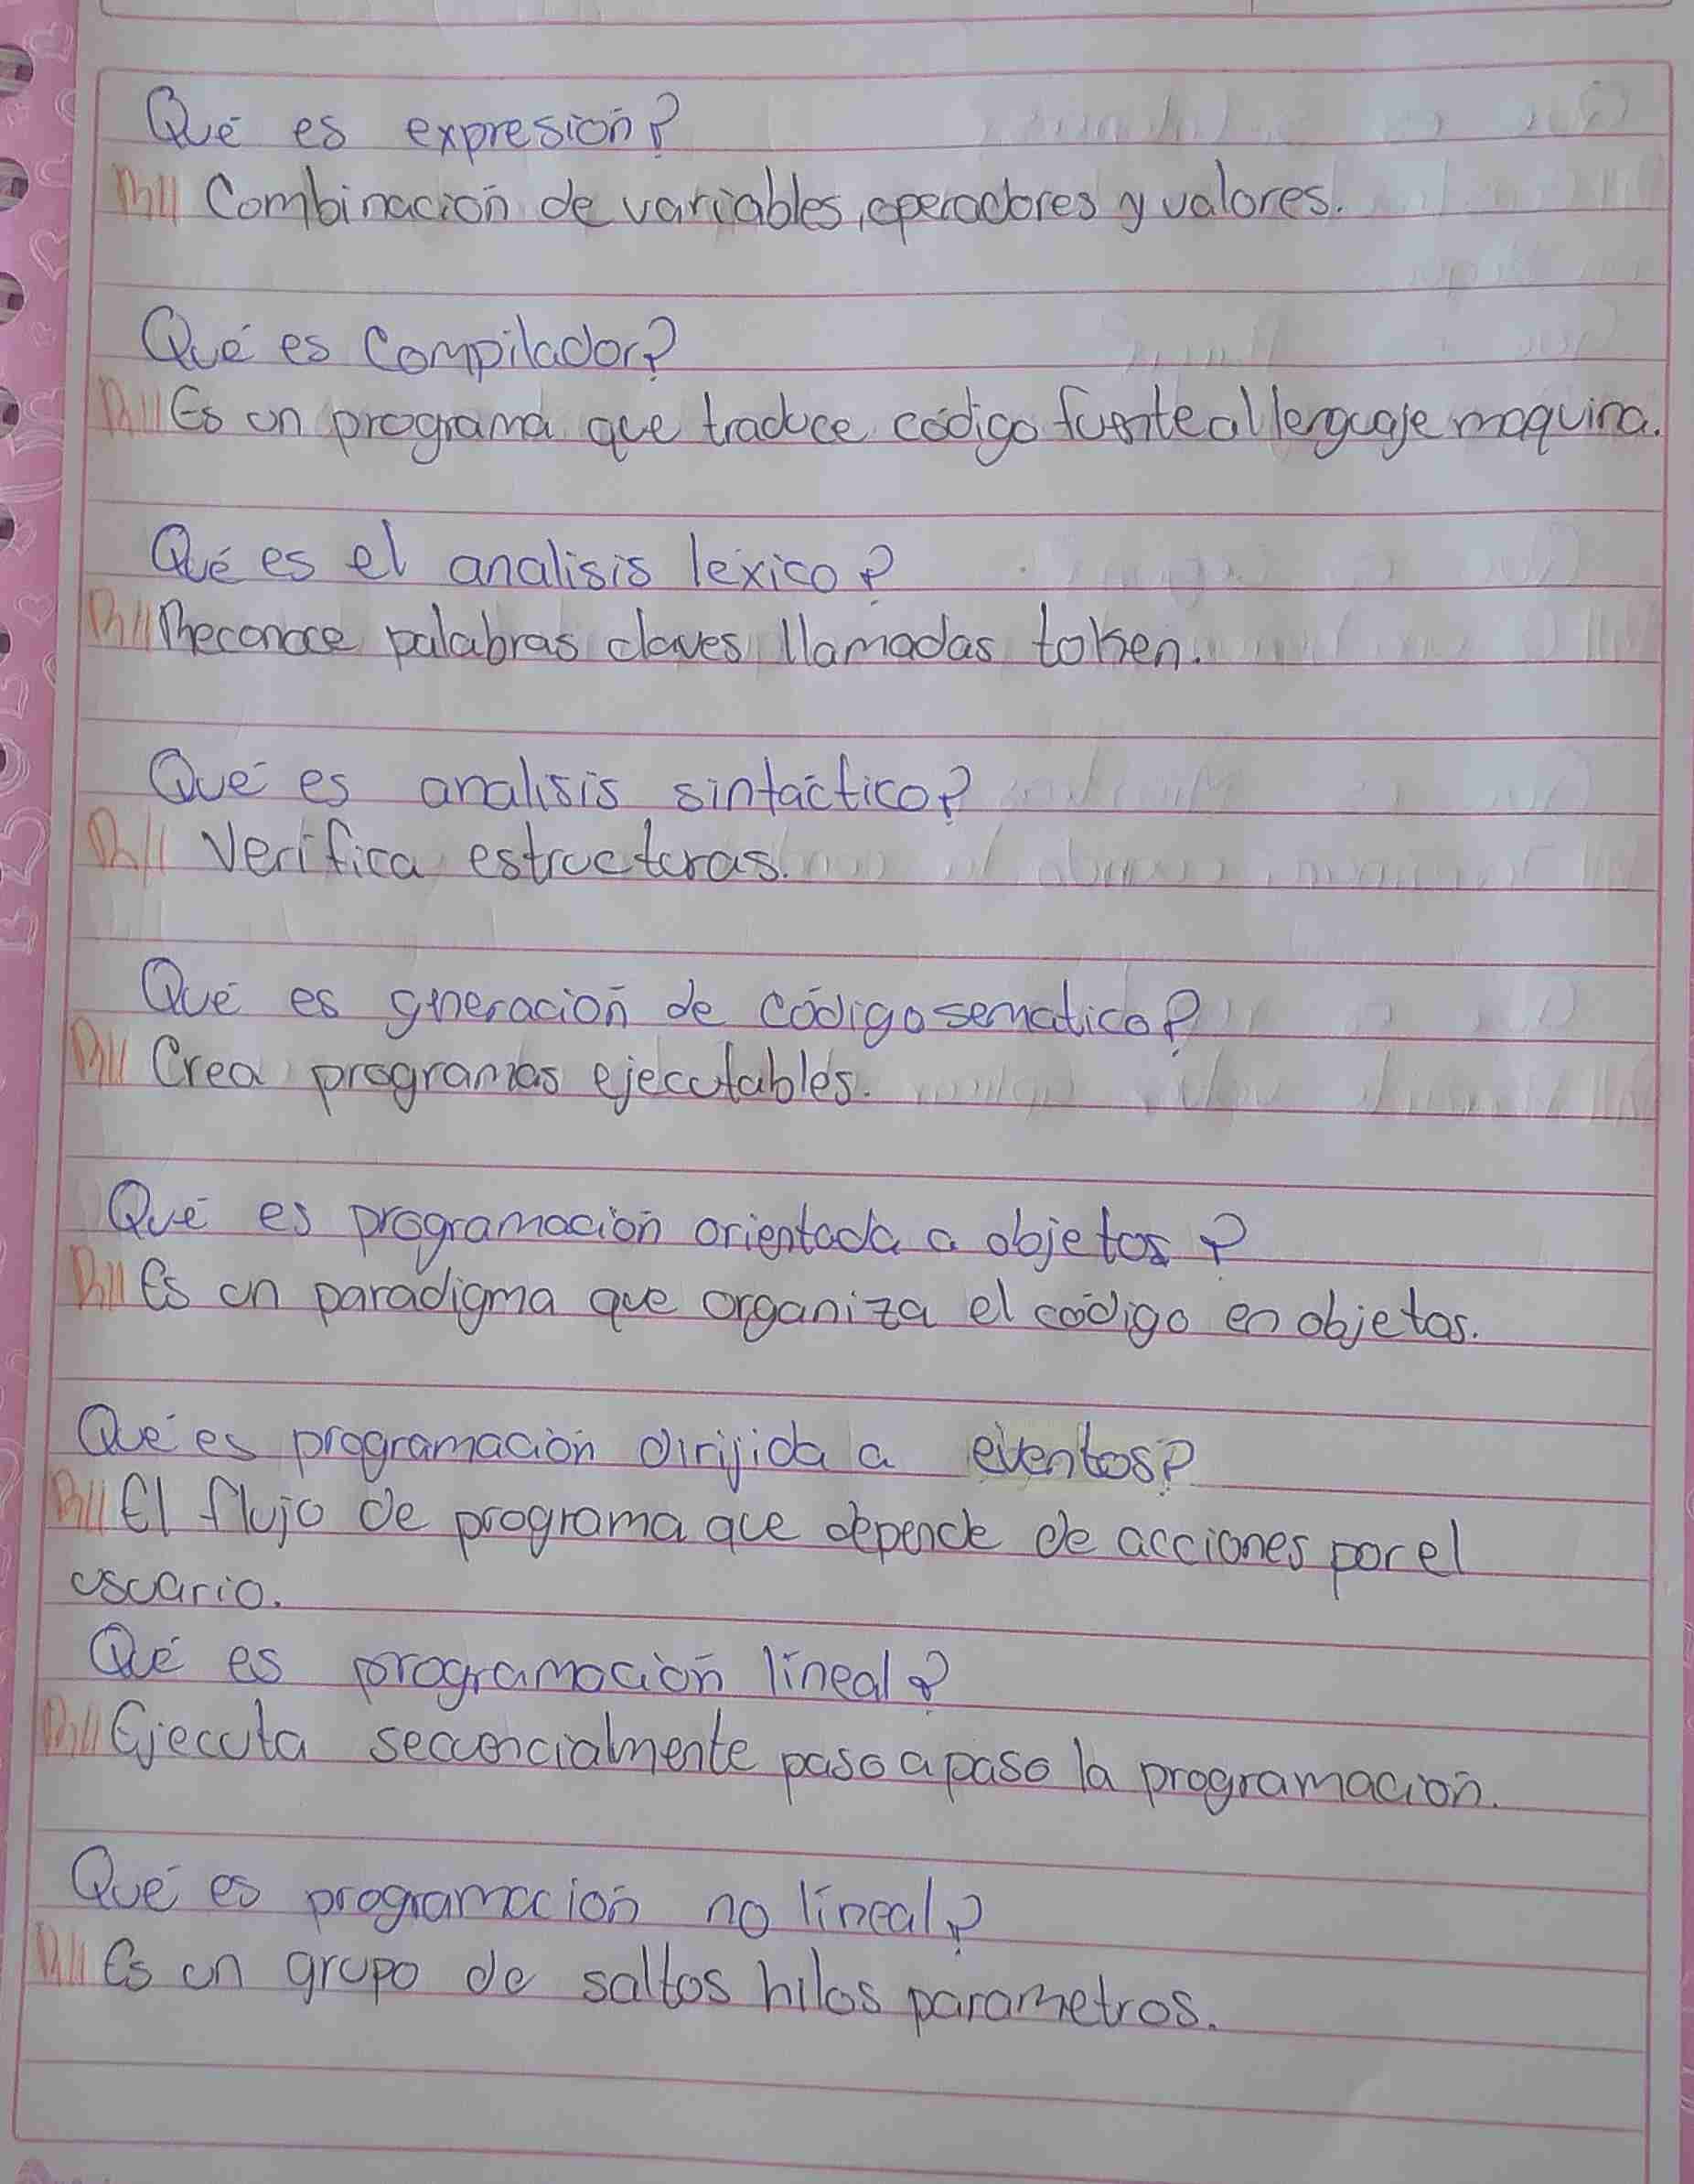 Qué es expresión?
R// Combinación de variables, operadores y valores.
Qué es Compilador?
R// Es un programa que traduce código fuente al lenguaje maquina.
Qué es el analisis lexico?
R// Reconoce palabras claves llamadas token.
Qué es analisis sintáctico?
R// Verifica estructuras.
Qué es gneración de código sematico?
R// Crea programas ejecutables.
Qué es programación orientada a objetos?
R// Es un paradigma que organiza el código en objetos.
Qué es programación dirijida a eventos?
R// El flujo de programa que depende de acciones por el
usuario.
Qué es programación líneal?
R// Ejecuta secuencialmente paso a paso la programación.
Qué es programación no líneal?
R// Es un grupo de saltos hilos parametros.